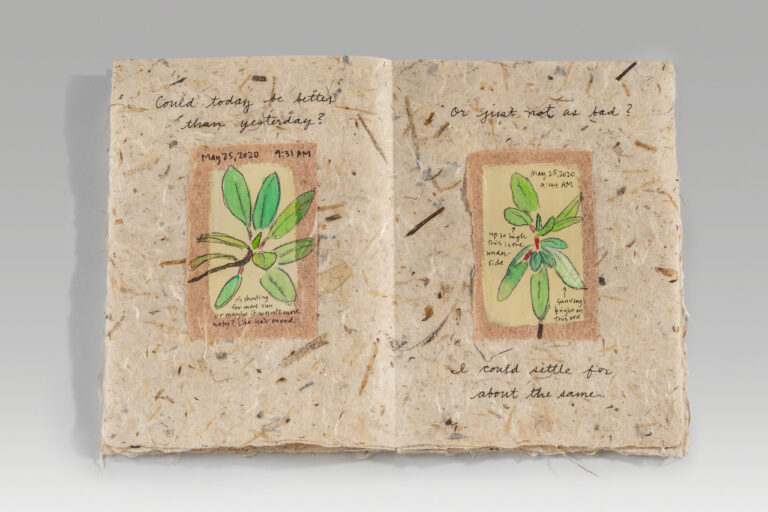 Could today be better
than yesterday?
May 25, 2020 9:31 AM
it's shouting
for more sun
or maybe it wants more
water? Like half on end.
Or just not as bad?
May 25, 2020
9:44 AM
up so high
this is one
under
side
sun very
bright on
this one
I could settle for
about the same.